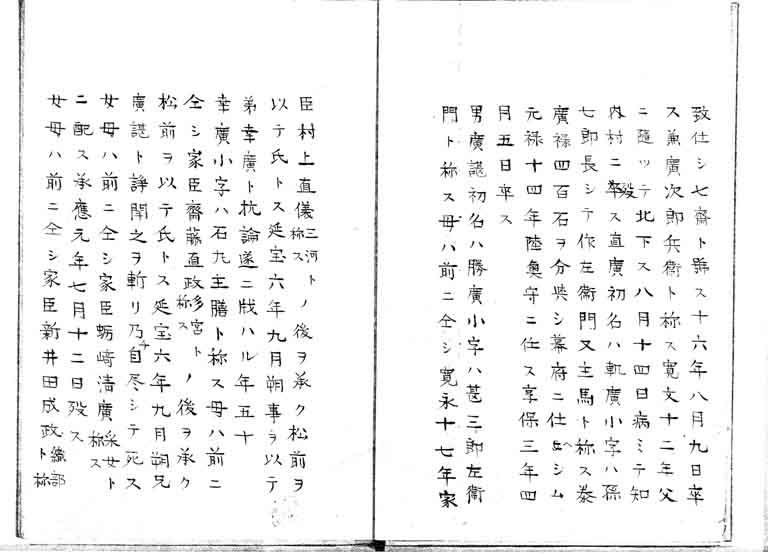 致仕シ七斎ト號ス十六年八月九日卒
ス兼廣次郎兵衛ト称ス寛文十二年父
ニ随ッテ北下ス八月十四日病ミテ知
内村ニ歿ス直廣初名ハ軌廣小字ハ孫
七郎長シテ作左衛門又主馬ト称ス泰
廣禄四百石ヲ分典シ幕府ニ仕ヘシム
元禄十四年陸奥守ニ仕ス享保三年四
月五日卒ス
男廣諶初名ハ勝廣小字ハ甚三郎左衛
門ト称ス母ハ前ニ仝シ寛永十七年家
臣村上直儀三河ト称スノ後ヲ承ク松前ヲ
以テ氏トス延宝六年九月朔事ヲ以テ
弟幸廣ト抗論遂ニ戕ハル年五十
幸廣小字ハ石九主膳ト称ス母ハ前ニ
仝シ家臣齋藤直政多宮ト称スノ後ヲ承ク
松前ヲ以テ氏トス延宝六年九月朔兄
廣諶ト諍鬩之ヲ斬リ乃チ自尽シテ死ス
女母ハ前ニ仝シ家臣蛎崎清廣采女ト称ス
ニ配ス承應元年七月十二日歿ス
女母ハ前ニ仝シ家臣新井田成政織部ト称